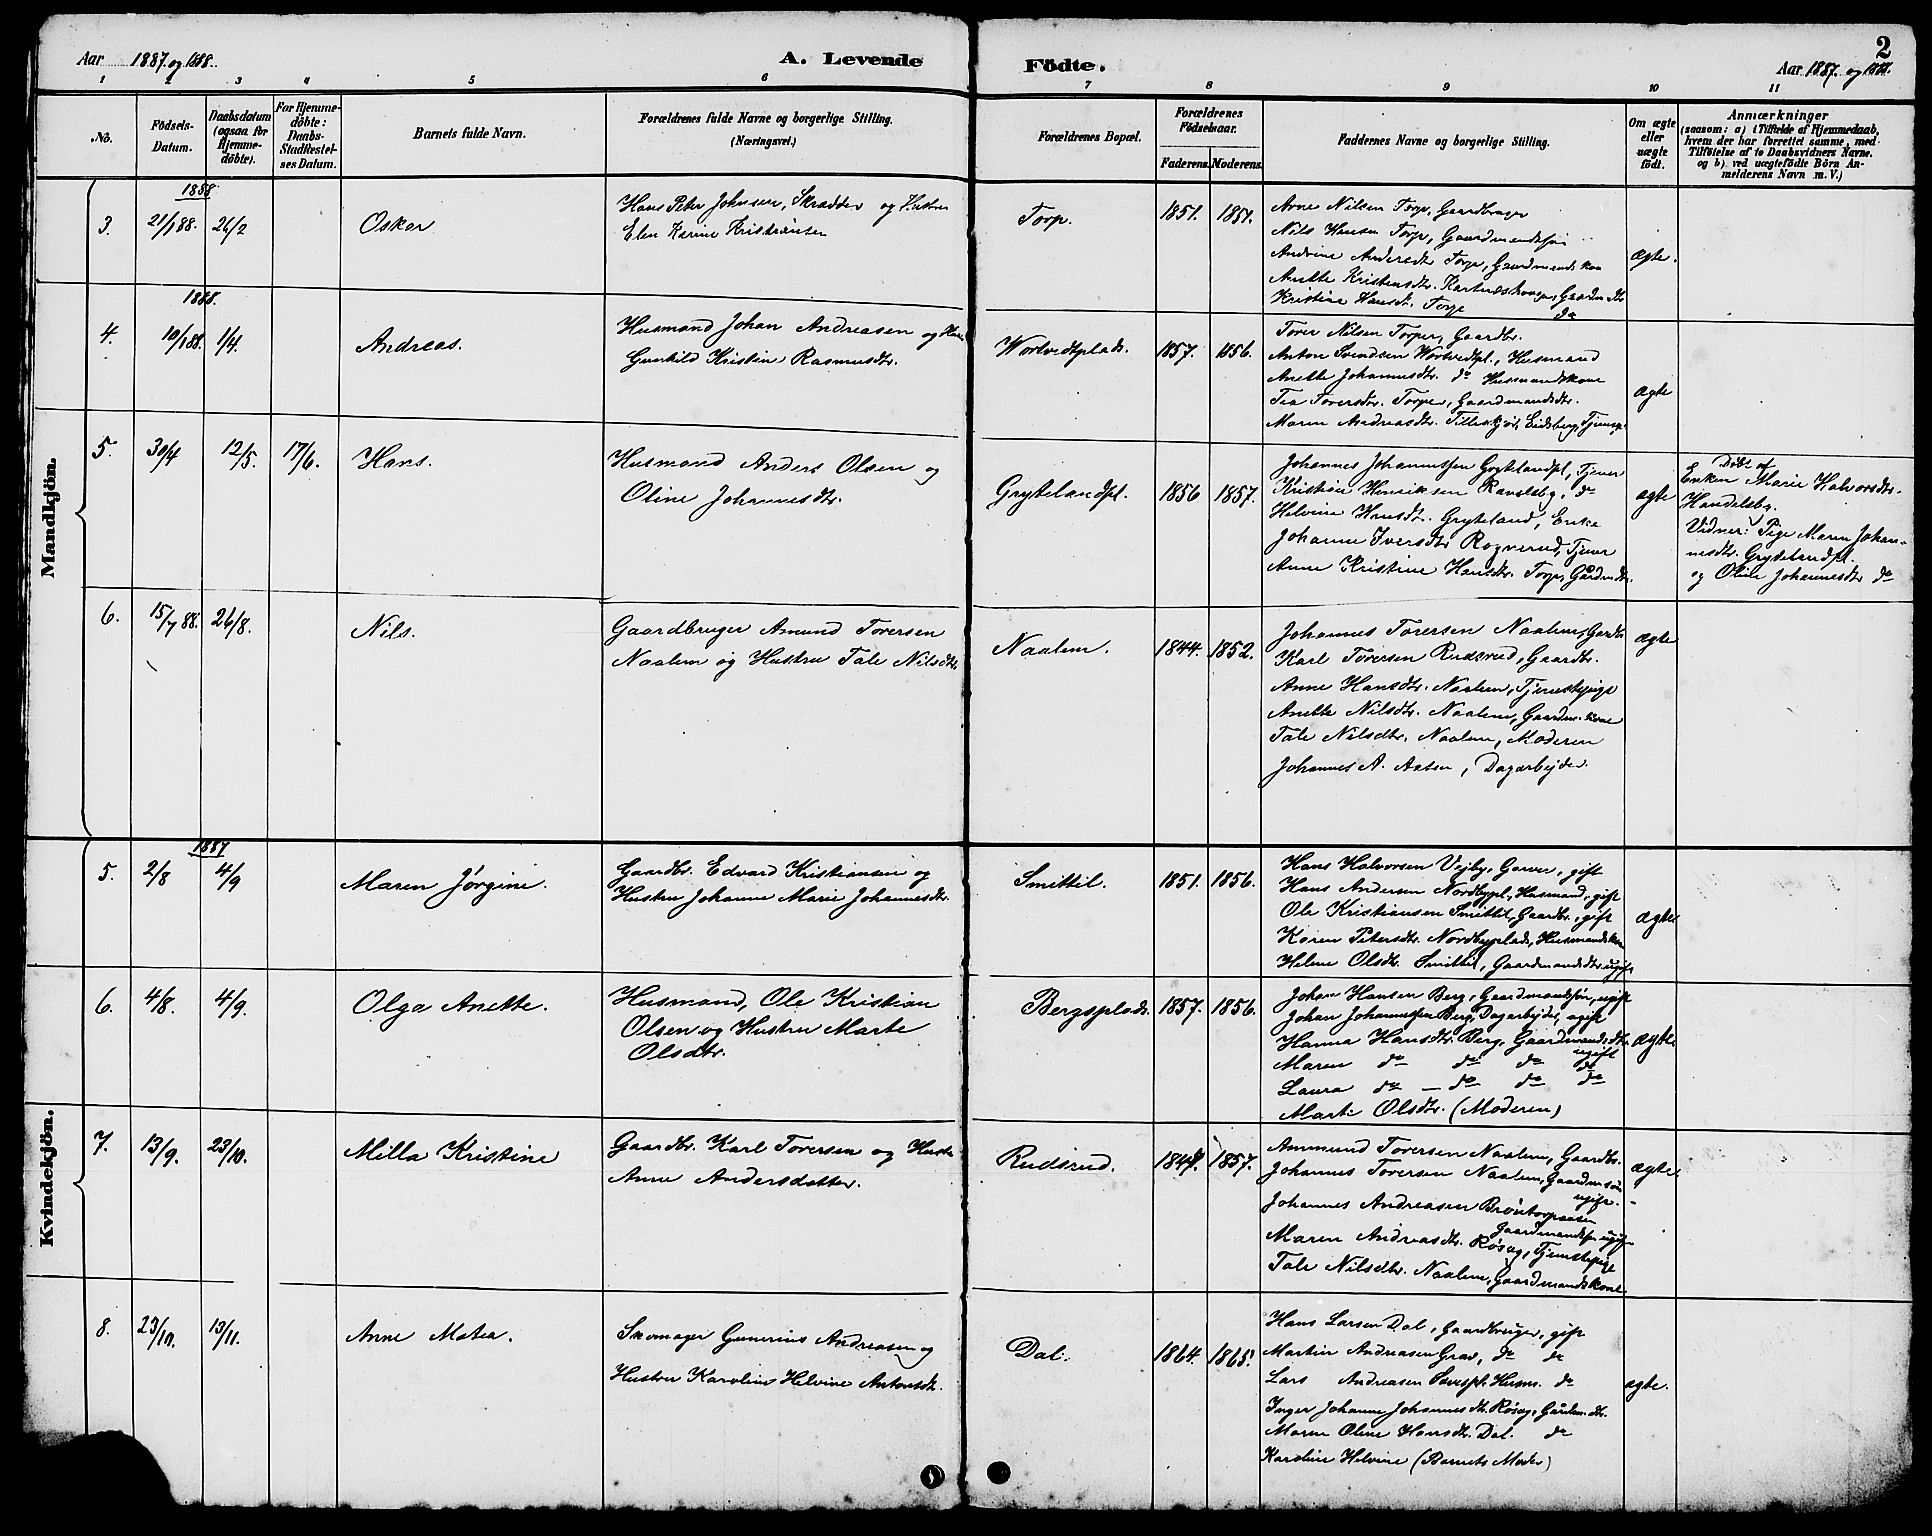 Aar 1887. og 1888.
A. Levende
Fødte.
2
Aar 1887. og 1888.
1 2 3 4 5 6 7 8 9 10 11
No.
Fødsels-
Datum.
Daabsdatum
(ogsaa for
Hjemme-
døbte).
For Hjemme-
døbte:
Daabs-
Stadfæstel-
ses Datum.
Barnets fulde Navn.
Forældrenes fulde Navne og borgerlige Stilling.
(Næringsvei.)
Forældrenes Bopæl.
Forældrenes
Fødselsaar.
Faderens. Moderens.
Faddernes Navne og borgerlige Stilling.
Om ægte
eller
uægte
født.
Anmærkninger
(saasom: a) i Tilfælde af Hjemmedaab,
hvem der har forrettet samme, med
Tilføielse af to Daabsvidners Navne,
og b) ved uægtefødte Børn An-
melderens Navn m. V.)
Mandkjön.
1888
3. 21/1 88. 26/2
Oskar
Hans Peter Johnsen, Skrædder og Hustru
Elen Karine Kristiansen
Torp.
1851. 1851.
Arne Nilsen Torp, Gaardbruger
Nils Hansen Torp, Gaardmandssøn
Andrine Andersdtr Torp, Gaardmandskone
Anette Kristensdtr.
Kristine Hansdtr. Torp do
ægte.
1888.
4. 10/1 88. 1/4.
Andreas.
Husmand Johan Andreasen og Hustru
Gunhild Kristine Rasmusdtr.
Wortvedtplads.
1857. 1856.
Torer Nilsen Torper, Gaardbr.
Anton Svendsen Wortvedtpl., Husmand
Anette Johannesdtr. do Husmandskone
Tea Torersdtr. Torper, Gaardmandsdtr.
Maren Andreasdtr. Eidsberg, Tjenep.
ægte
5. 30/4 12/5. 17/6.
Hans.
Husmand Anders Olsen og
Oline Johannesdtr.
Grytelandpl.
1856 1857.
Johannes Johannessen Grytelandpl, Tjener
Kristian Henriksen Ravelsby, do
Helvine Hansdtr. Gryteland, Enke
Johanne Iversdtr Rognerud, Tjener
Anne Kristine Hansdtr. Torp, Gårdmdtr.
ægte
Døbt af
Enken Marie Halvorsdtr.
Handelsby.
Vidner: Pige Maren Johan-
nesdtr. Grytelandpl.
og Oline Johannesdtr do
6. 15/7 88. 26/8.
Nils.
Gaardbruger Amund Torersen
Naalem og Hustru Tale Nilsdtr.
Naalem.
1844. 1852.
Johannes Torersen Naalem, Gardbr
Karl Torersen Rudsrud, Gaardbr.
Anne Hansdtr. Naalem, Tjenestepige
Anette Nilsdtr. Naalem, Gaardm. kone
Tale Nilsdtr. Naalem, Moderen
Johannes A. Asten, Dagarbejder.
ægte
Kvindekjön.
1887
5. 2/8 4/9
Maren Jørgine.
Gaardbr. Edvard Kristiansen og
Hustru Johanne Marie Johannesdtr.
Smittil.
1851. 1856.
Hans Halvorsen Vejby, Garver, gift
Hans Andersen Nordbypl, Husmand, gift
Ole Kristiansen Smittil, Gaardbr., gift
Karen Petersdtr. Nordbyplads, Husmandskone
Helene Olsdtr. Smittil, Gaardmandsdtr. ugift
ægte
6. 4/8. 4/9.
Olga Anette.
Husmand, Ole Kristian
Olsen og Hustru Marte
Olsdtr.
Bergsplads.
1857. 1856.
Johan Hansen Berg, Gaardmandssøn, ugift
Johan Johannessen Berg, Dagarbejder, ugift
Hanna Hansdtr. Berg, Gaardmandsdtr.
ugift
Maren do do do do
Laura do — do do do
Marte Olsdtr. (Moderen)
ægte
7. 13/9. 23/10.
Milla Kristine
Gaardbr. Karl Torersen og Hustru
Anne Andersdatter.
Rudsrud.
1847. 1857.
Ammund Torersen Naalem, Gaardbr.
Johannes Torersen Naalem, Gaardmsøn
ugift.
Johannes Andreasen Brøntorpaasen
Gaardmandssøn ugift
Maren Andreasdtr. Røsæg, Tjenestepige
Tale Nilsdtr. Naalem, Gaardmandskone
ægte.
8. 23/10. 13/11.
Anne Matea.
Skomager Gunerius Andreasen og
Hustru Karoline Helvine Antonsdtr.
Dal.
1864. 1865.
Hans Larsen Dal, Gaardbruger, gift
Martin Andreasen Grav, do do
Lars Andreasen Husm. do
Inger Johanne Johannesdtr. Røsæg, Gårdm.dtr.
Maren Oline Hansdtr. Dal. do
Karoline Helvine (Barnets Moder)
ægte.